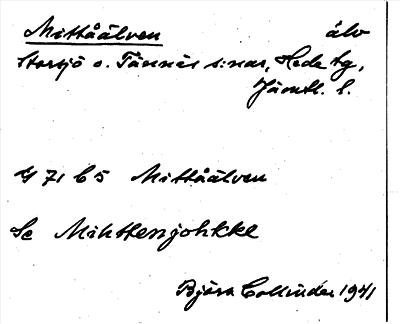 Mittåälven älv
Storsjö o. Tännäs s:nar, Hede tg,
Jämtl. l.
G 71 b 5 Mittåälven
Se Mihttenjohkke
Björn Collinder 1941